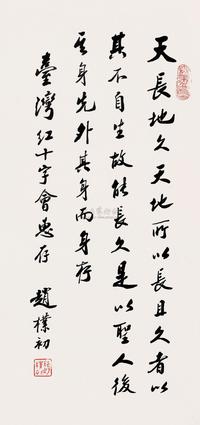 天長地久天地所以長且久者以
其不自生故能長久是以聖人後
其身先外其身而身存
臺灣紅十字會惠存
趙樸初